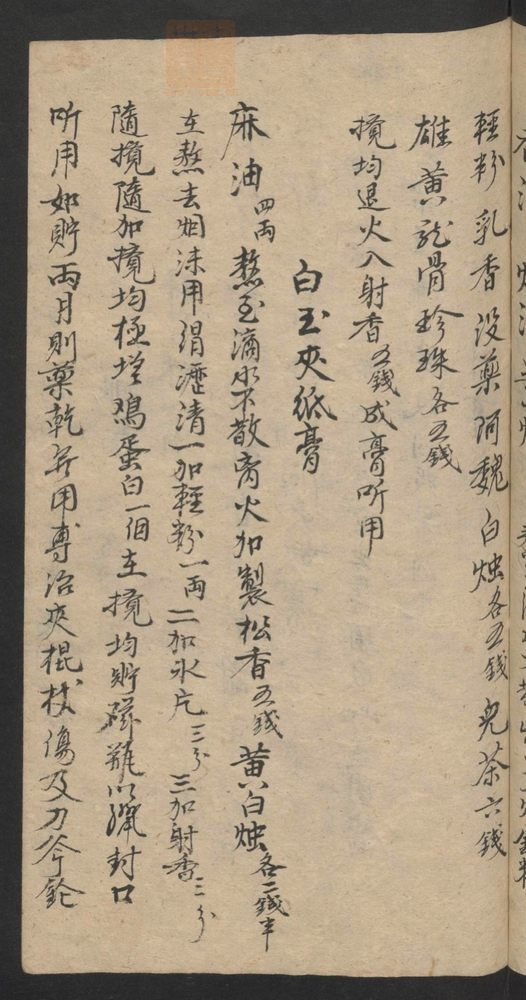 輕粉乳香没藥阿魏白烛各五錢兒茶六錢
雄黄龍骨珍珠各五錢
攪均退火入射香五錢成膏听用
白玉夾紙膏
麻油四両熬至滴水不散离火加製松香五錢黄白烛各二錢半
在熬去烟沫用绢瀝清一加輕粉一両二加氷片三分三加射香二分
隨攪隨加攪均極增鷄蛋白一個在攪均貯磁瓶以 封口
听用如貯両月則藥乾 用專治夾棍杖傷及刀斧